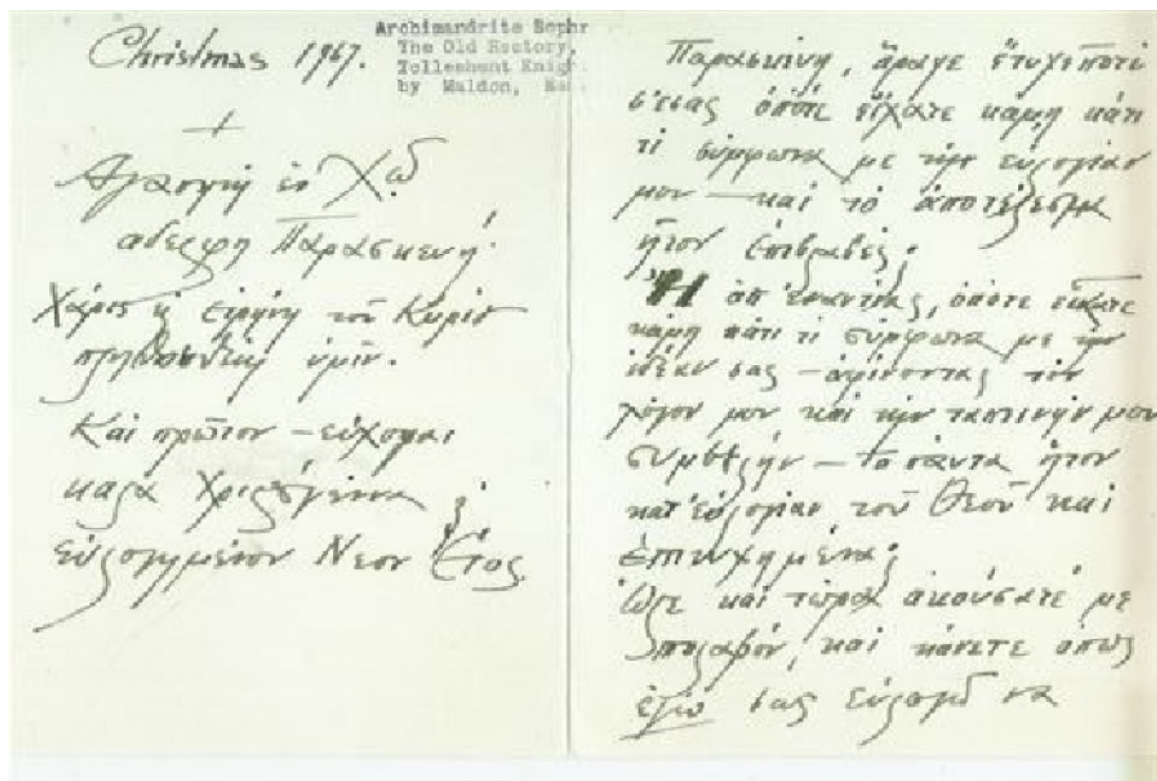 Christmas 1967.
Archimandrite Sophr
The Old Rectory,
Tolleshunt Knigh
by Maldon, Es
+
Αγαπητή ἐν Χῷ
αδελφη Παρασκευή·
Χάρις κ εἰρήνη τοῦ Κυρίου
πληθυνθείη ὑμῖν.
Καὶ πρῶτον – εὔχομαι
καλα Χριστούγεννα κ
εὐλογημένον Νεον Ἔτος
Παρασκευή, ἄραγε ἔτυχε ποτέ
σ'εσας ὁπότε εἴχατε κάμη κάτι
τί σύμφωνα με τὴν εὐλογίαν
μου – καὶ τὸ ἀποτέλεσμα
ἦτον ἐπιβλαβές;
Ἢ ἀπ' ἐναντίας, ὁπότε εἴχατε
κάμη κάτι τι σύμφωνα με την
ἰδέαν σας – ἀφίνοντας τὸν
λόγον μου καὶ τὴν ταπεινήν μου
συμβουλήν – τὸ πάντα ἦτον
κατ' εὐλογίαν τοῦ Θεοῦ καὶ
ἐπιτυχημένα;
Ὥστε καὶ τώρα ἀκούσατέ με
καὶ κάνετε ὅπως
ἐγὼ σας εὐλογῶ να